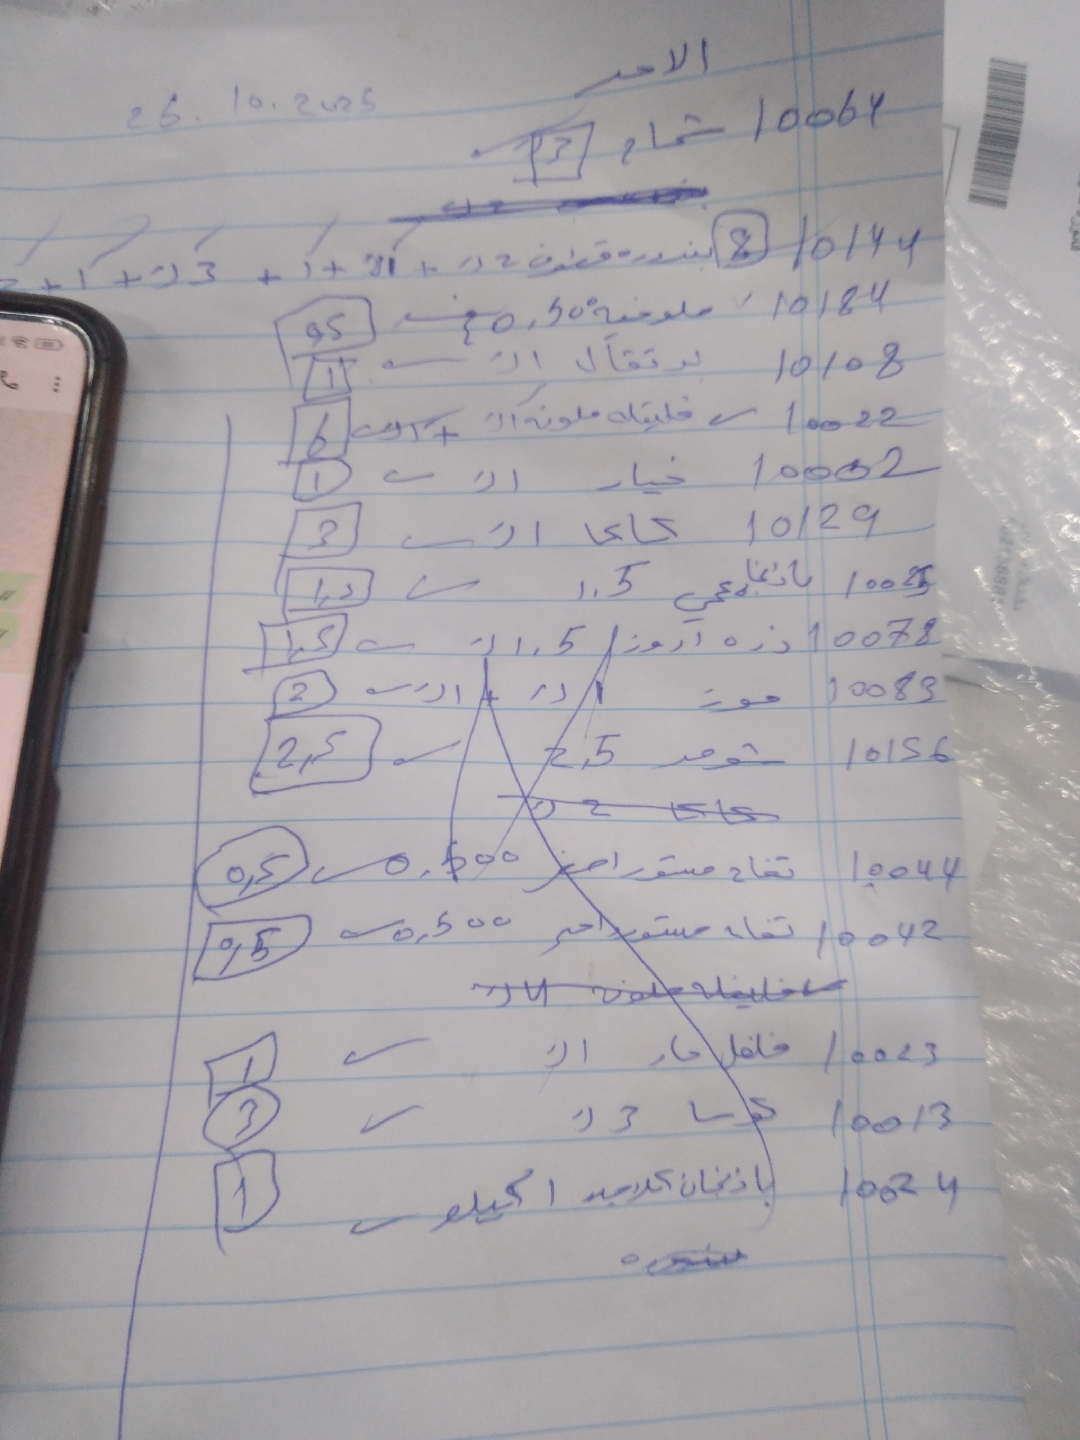 الاحد
26.10.2025
10064 شمام 3
10144 8 بندوره عنقود 2ك + 1ك + 1 + 3ك + 1 +
10184 ملوخيه 0,500 0,5
10108 برتقال 1ك 1
10022 فليفله ملونه 6
10002 خيار 1ك 1
10129 كاكا 1ك 3
10025 باذنجان عجمي 1.5 1,5
10078 ذره 1.5ك 1,5
10083 موز 1ك + 1ك 2
10156 شومر 2,5 2,5
كاكا 2ك
10044 تفاح مستورد 0.500 0,5
10042 تفاح مستورد احمر 0,500 0,5
فليفله ملونه 4ك
10023 فلفل حار 1ك 1
10013 كوسا 3ك 3
10024 باذنجان كلاجيد 1 كيلو 1